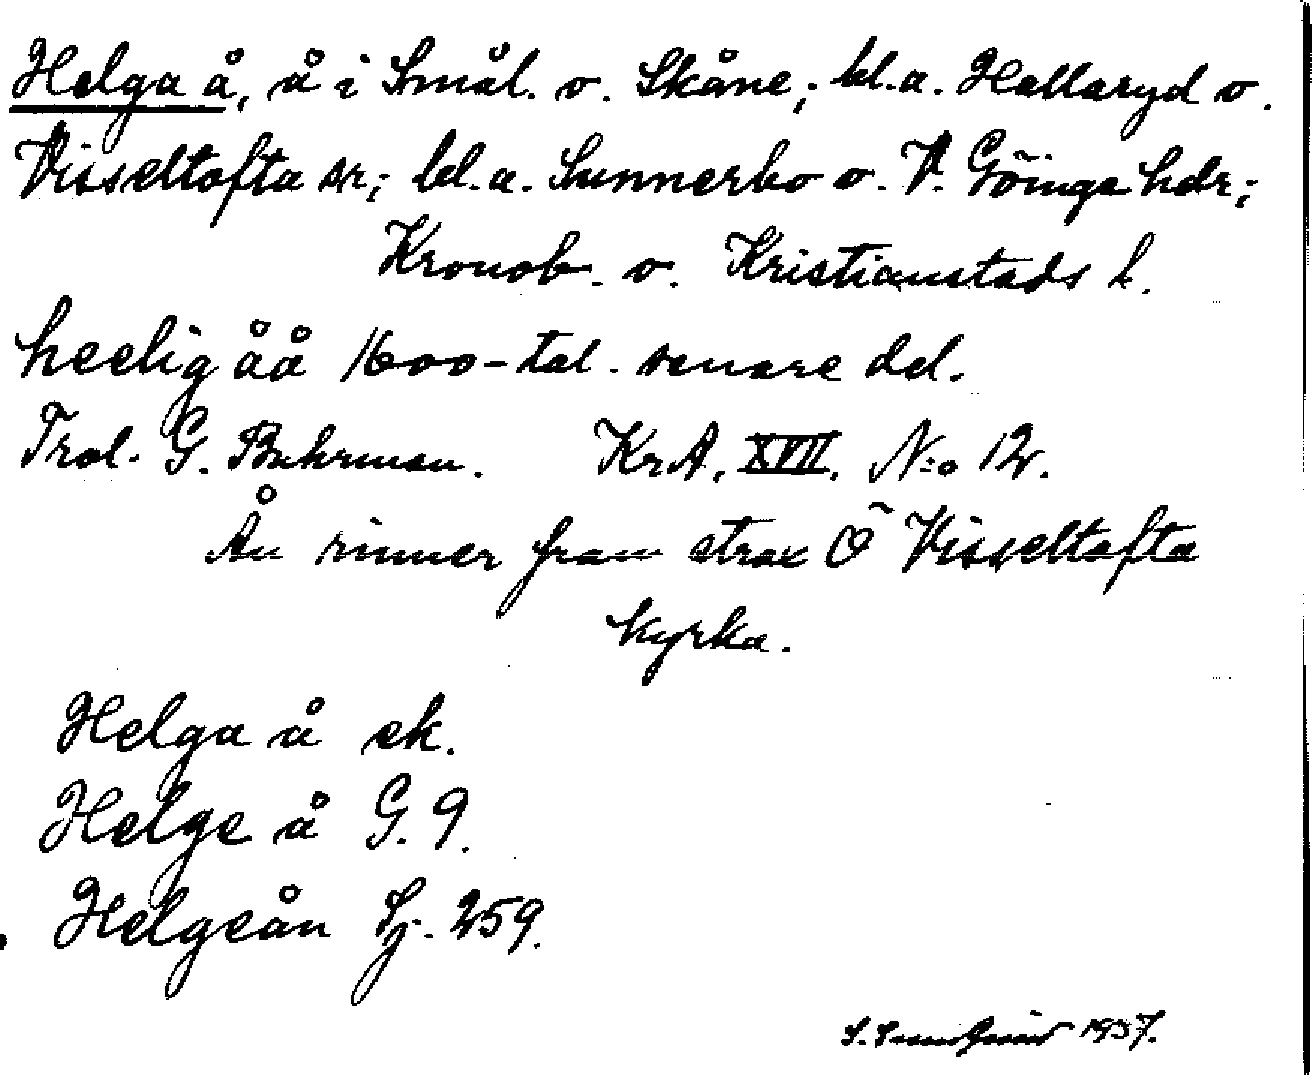 Helga å, å i Smål. o. Skåne; bl.a. Hallaryd o.
Visseltofta snr; bl.a. Sunnerbo o. V. Göinge hdr;
Kronob. o. Kristianstads l.
heelig åå 1600-tal. senare del.
Trol. G. Buhrman. KrA. XVII. N:o 12.
Ån rinner fram strax Ö Visseltofta
kyrka.
Helga å ek.
Helge å G. 9.
Helgeån Sj. 259.
S. 1937.